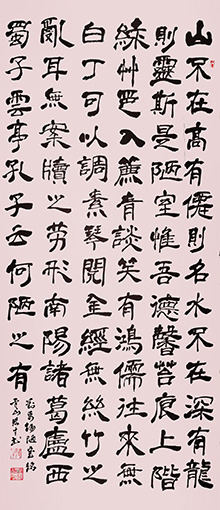 山不在高有僊則名水不在深有龍
則靈斯是陋室惟吾德馨苔痕上階
綠艸色入簾青談笑有鴻儒往來無
白丁可以調素琴閱金經無絲竹之
亂耳無案牘之勞形南陽諸葛廬西
蜀子雲亭孔子云何陋之有
劉禹錫陋室銘